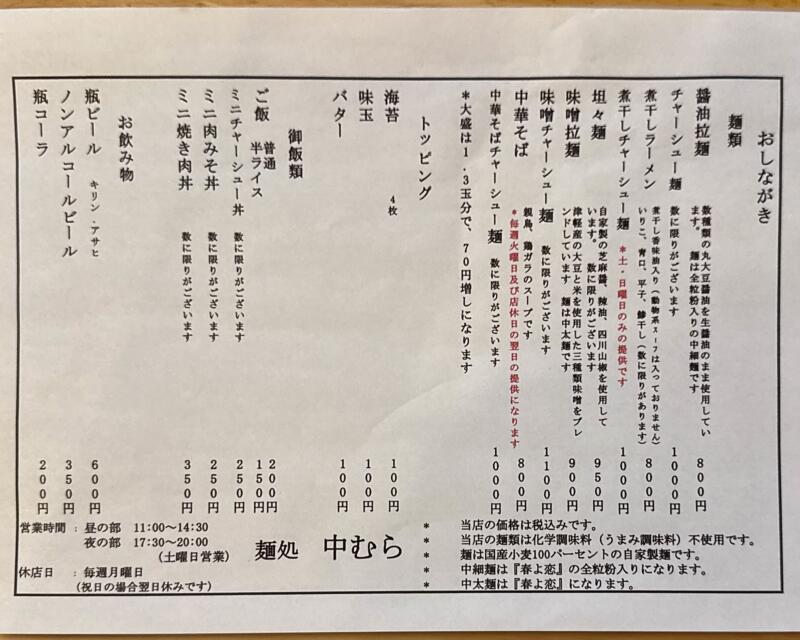 おしながき
麺類
醤油拉麺 数種類の丸大豆醤油を生醤油のまま使用してい
ます。 麺は全粒粉入りの中細麺です 800円
チャーシュー麺 数に限りがございます 1000円
煮干しラーメン 煮干し香味油入り(動物系スープは入っておりません)
いりこ、青口、平子、鯵干し(数に限りがあります) 800円
煮干しチャーシュー麺 *土・日曜日のみの提供です 1000円
坦々麺 自家製の芝麻醤、辣油、四川山椒を使用して
います。 数に限りがございます 950円
味噌拉麺 津軽産の大豆と米を使用した三種類味噌をブレ
ンドしています 麺は中太麺です 900円
味噌チャーシュー麺 数に限りがございます 1100円
中華そば 親鳥、鶏ガラのスープです
*毎週火曜日及び店休日の翌日の提供になります 800円
中華そばチャーシュー麺 数に限りがございます 1000円
*大盛は1.3玉分で、70円増しになります
トッピング
海苔 4枚 100円
味玉 100円
バター 100円
御飯類
ご飯 普通 200円
半ライス 150円
ミニチャーシュー丼 数に限りがございます 250円
ミニ肉みそ丼 数に限りがございます 250円
ミニ焼き肉丼 数に限りがございます 350円
お飲み物
瓶ビール キリン.アサヒ 600円
ノンアルコールビール 350円
瓶コーラ 200円
営業時間 : 昼の部 11:00~14:30
夜の部 17:30~20:00
(土曜日営業)
休店日 : 毎週月曜日
(祝日の場合翌日休みです)
麺処 中むら
* 当店の価格は税込みです。
* 当店の麺類は化学調味料(うまみ調味料)不使用です。
* 麺は国産小麦100パーセントの自家製麺です。
* 中細麺は『春よ恋』の全粒粉入りになります。
* 中太麺は『春よ恋』になります。